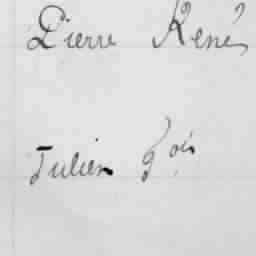 Pierre René
Julien